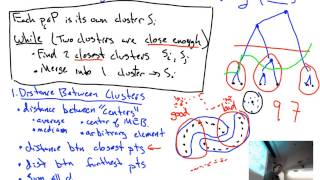 Each p∈P is its own cluster Si
While (Two clusters are close enough)
• Find 2 closest clusters Si, Sj
• Merge into 1 cluster → Si
1. Distance Between Clusters
• distance between "centers"
• average • center of MEB
• mediam • arbitrary element
• distance btn closest pts
• dist btn furthest pts
good
bad
97